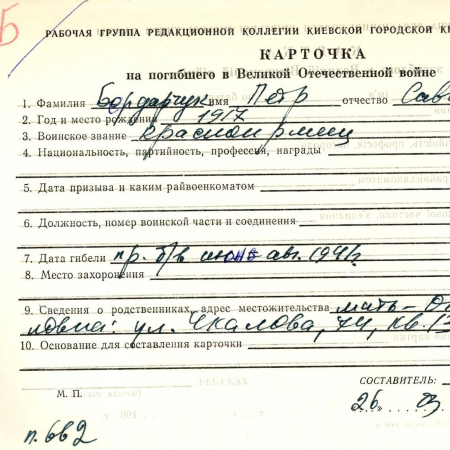 Б
РАБОЧАЯ ГРУППА РЕДАКЦИОННОЙ КОЛЛЕГИИ КИЕВСКОЙ ГОРОДСКОЙ КН
КАРТОЧКА
на погибшего в Великой Отечественной войне
1. Фамилия Бордарчук имя Петр отчество Сав
2. Год и место рождения 1917
3. Воинское звание красноармеец
4. Национальность, партийность, профессия, награды
5. Дата призыва и каким райвоенкоматом
6. Должность, номер воинской части и соединения
7. Дата гибели пр. б/в авг. 1941г.
8. Место захоронения
9. Сведения о родственниках, адрес местожительства мать –
ул. Чкалова, 74, кв. 1
10. Основание для составления карточки
СОСТАВИТЕЛЬ:
М. П.
26 03
п. 662